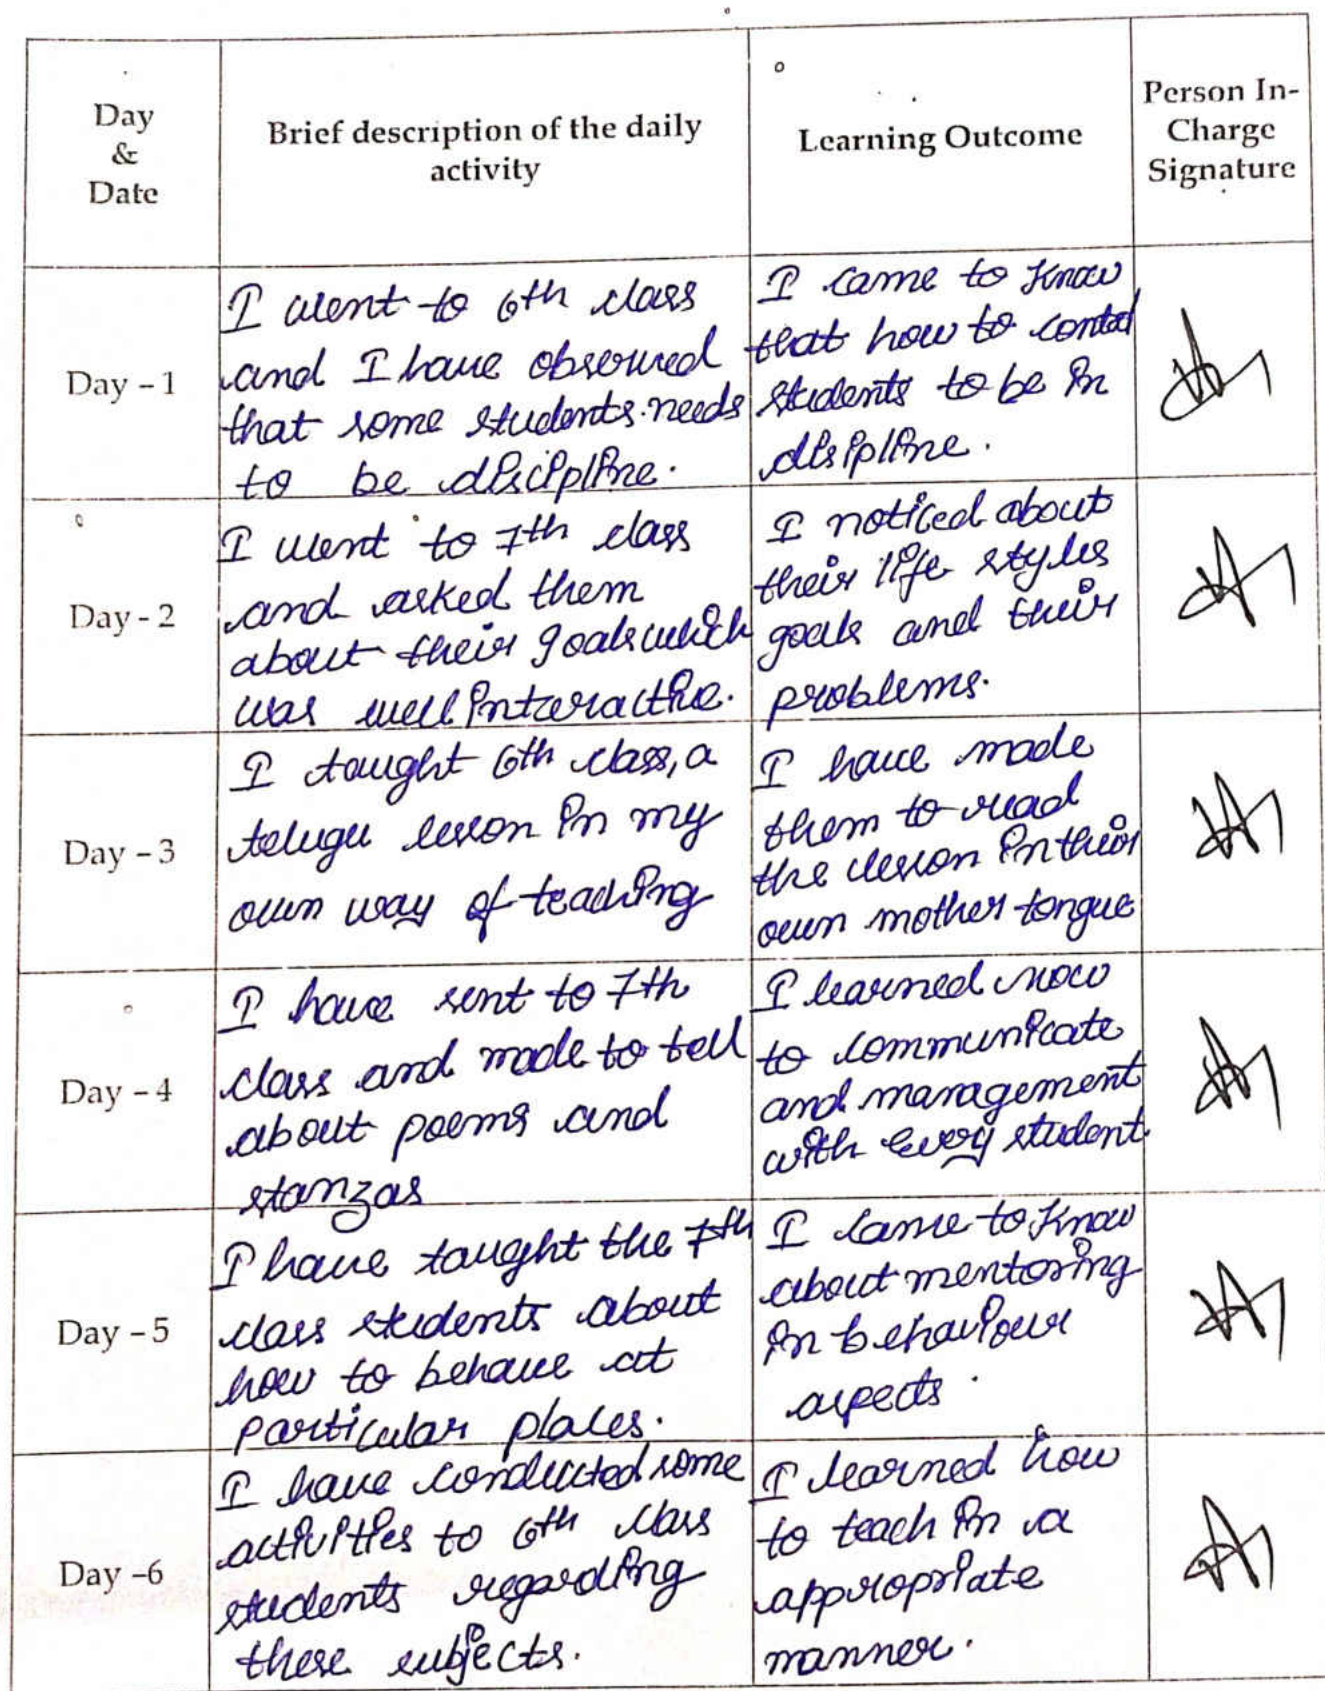 Day
&
Date
Brief description of the daily
activity
Learning Outcome
Person In-
Charge
Signature
Day - 1
I went to 6th class
and I have observed
that some students needs
to be discipline.
I came to know
that how to control
students to be in
disipline.
Day - 2
I went to 7th class
and asked them
about their goals which
was well interactive.
I noticed about
their life styles
goals and their
problems.
Day - 3
I taught 6th class, a
telugu lesson in my
own way of teaching
I have made
them to read
the lesson in their
own mother tongue
Day - 4
I have sent to 7th
class and made to tell
about poems and
stanzas
I learned how
to communicate
and management
with every student.
Day - 5
I have taught the 7th
class students about
how to behave at
particular places.
I came to know
about mentoring
in behaviour
aspects.
Day -6
I have conducted some
activities to 6th class
students regarding
these subjects.
I learned how
to teach in a
appropriate
manner.